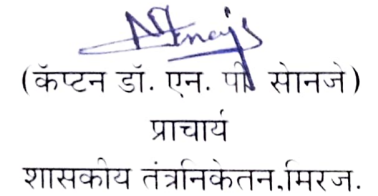 (कॅप्टन डॉ. एन. पी सोनजे)
प्राचार्य
शासकीय तंत्रनिकेतन,मिरज.